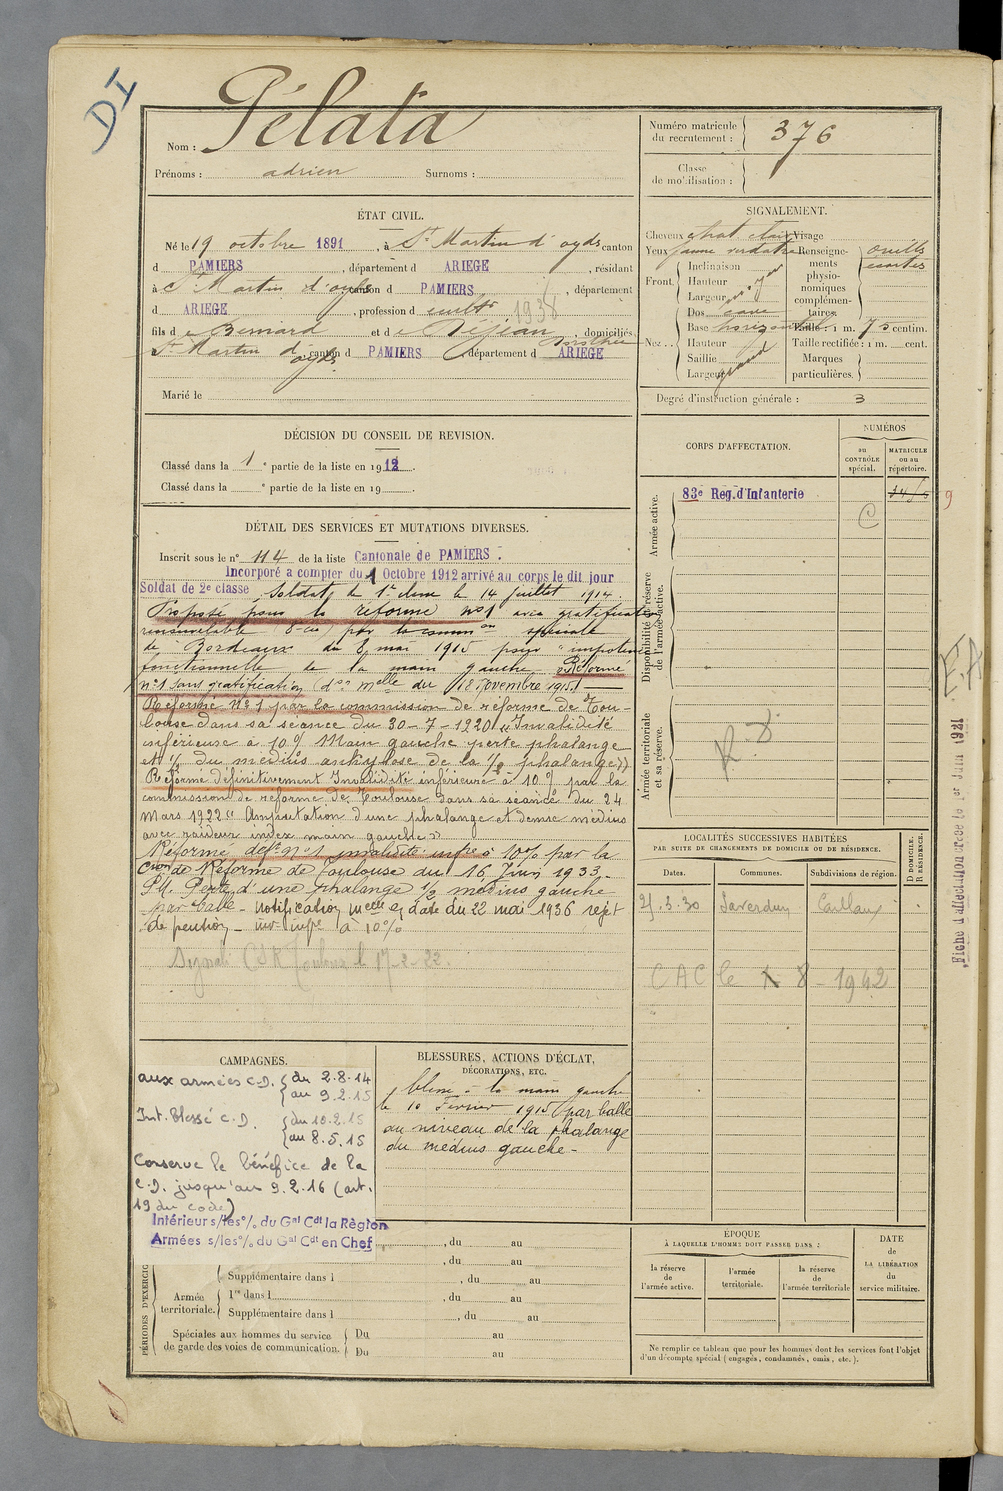 DI
Nom : Pélata
Prénoms : adrien Surnoms :
Numéro matricule du recrutement : 376
Classe de mobilisation :
ÉTAT CIVIL.
Né le 19 octobre 1891, à St Martin d'oydes canton
d PAMIERS, département d ARIEGE, résidant
à St Martin d'oydes canton d PAMIERS, département
d ARIEGE, profession d cultr 1938
fils de Bernard et de Déjean, domiciliés
St Martin d'oydes canton d PAMIERS, département d ARIEGE
Marié le
SIGNALEMENT.
Cheveux chat clair Visage
Yeux jaune verdatre Renseigne-
ments
physio-
nomiques
complémen-
taires :
oreilles
écartées
Front. Inclinaison
Hauteur
Largeur
Nez. Dos cave
Base horizontale Taille : 1 m. 73 centim.
Hauteur Taille rectifiée : 1 m. cent.
Saillie Marques
Largeur grand particulières.
Degré d'instruction générale : 3
DÉCISION DU CONSEIL DE REVISION.
Classé dans la 1e partie de la liste en 1912.
Classé dans la e partie de la liste en 19 .
DÉTAIL DES SERVICES ET MUTATIONS DIVERSES.
Inscrit sous le n° 114 de la liste Cantonale de PAMIERS.
Incorporé a compter du 1 Octobre 1912 arrivé au corps le dit jour
Soldat de 2e classe Soldat de 1re classe le 14 juillet 1914
Proposé pour la réforme n°1 avec gratification
renouvelable (8e cie) par la common spéciale
de Bordeaux du 8 mai 1915 pour "impotence
fonctionnelle de la main gauche Réformé
n°1 sans gratification (don melle du 18 novembre 1915) —
Réformé N° 1 par la commission de réforme de Tou-
louse dans sa séance du 30-7-1920 "Invalidité
inférieure à 10% Main gauche perte phalange
et ½ du médius ankylose de la ½ phalange»
Réformé définitivement Invalidité inférieure à 10% par la
commission de réforme de Toulouse dans sa séance du 24
mars 1922 "Amputation d'une phalange et demie médius
avec raideur index main gauche»
Réformé déft n°1 invalidité infre à 10% par la
Cion de Réforme de Toulouse du 16 Juin 1933.
Perte d'une phalange ½ médius gauche
par balle - notification melle en date du 22 mai 1936 rejet
de pension - inv. infre à 10%
Signalé CdR Toulouse le 17-2-22.
CORPS D'AFFECTATION.
NUMÉROS
au
CONTRÔLE
spécial.
MATRICULE
ou au
répertoire.
Armée active.
83e Reg. d'Infanterie
C
Disponibilité et réserve
de l'armée active.
Armée territoriale
et sa réserve.
R 8
LOCALITÉS SUCCESSIVES HABITÉES
PAR SUITE DE CHANGEMENTS DE DOMICILE OU DE RÉSIDENCE.
D DOMICILE.
R RÉSIDENCE.
Dates. Communes. Subdivisions de région.
25.3.30 Saverdun
CAC le 8 - 1942
Fiche d'affectation créée le 1er Juin 1921
CAMPAGNES.
aux armées C.D. du 2.8.14
au 9.2.15
Int. Blessé C.D. du 10.2.15
au 8.5.15
Conserve le bénéfice de la
C.D. jusqu'au 9.2.16 (art.
19 du code)
Intérieur s/les °/. du Gal Cdt la Région
Armées s/les °/. du Gal Cdt en Chef
BLESSURES, ACTIONS D'ÉCLAT,
DÉCORATIONS, ETC.
blessé à la main gauche
le 10 février 1915 (par balle
au niveau de la phalange
du médius gauche -
PÉRIODES D'EXERCIC
, du au
, du au
Supplémentaire dans l , du au
Armée
territoriale.
1re dans l , du au
Supplémentaire dans l , du au
Spéciales aux hommes du service
de garde des voies de communication.
Du au
Du au
ÉPOQUE
À LAQUELLE L'HOMME DOIT PASSER DANS :
la réserve
de
l'armée active.
l'armée
territoriale.
la réserve
de
l'armée territoriale
DATE
de
LA LIBÉRATION
du
service militaire.
Ne remplir ce tableau que pour les hommes dont les services font l'objet
d'un décompte spécial (engagés, condamnés, omis, etc.).